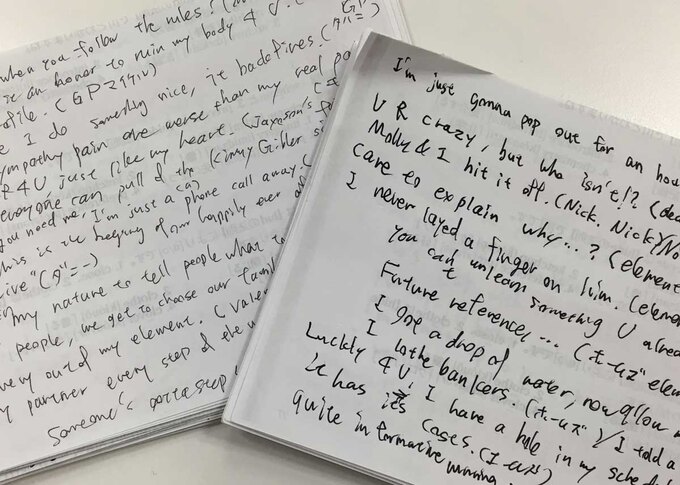 when you follow the rules? (
an honor to ruin my body 4 U. (
ofile. (GPマイケル)
I do something nice, it backfires. (
sympathy pain are worse than my real pa
R 4 U, just like my heart. (Jaxson's
everyone can pull of the Kimmy Gibler si
you need me, I'm just a phone call away (
This is the beginning of our happily ever
ive"
my nature to tell people what to
people, we get to choose our famil
very out of my element. (Valer
my partner every step of the w
Someone's gotta step
I'm just gonna pop out for an hou
U R crazy, but who isn't!? (dea
Molly & I hit it off. (Nick. Nick)/No
care to explain why...? (element
I never layed a finger on him. (elemen
You can't unlearn something U alread
Future reference, ... (ホームズ elem
I see a drop of water, now allow m
I lothe bankers. (ホームズ)/I told a
Luckly 4 U, I have a hole in my sched
it has its cases. (
quite informative morning.